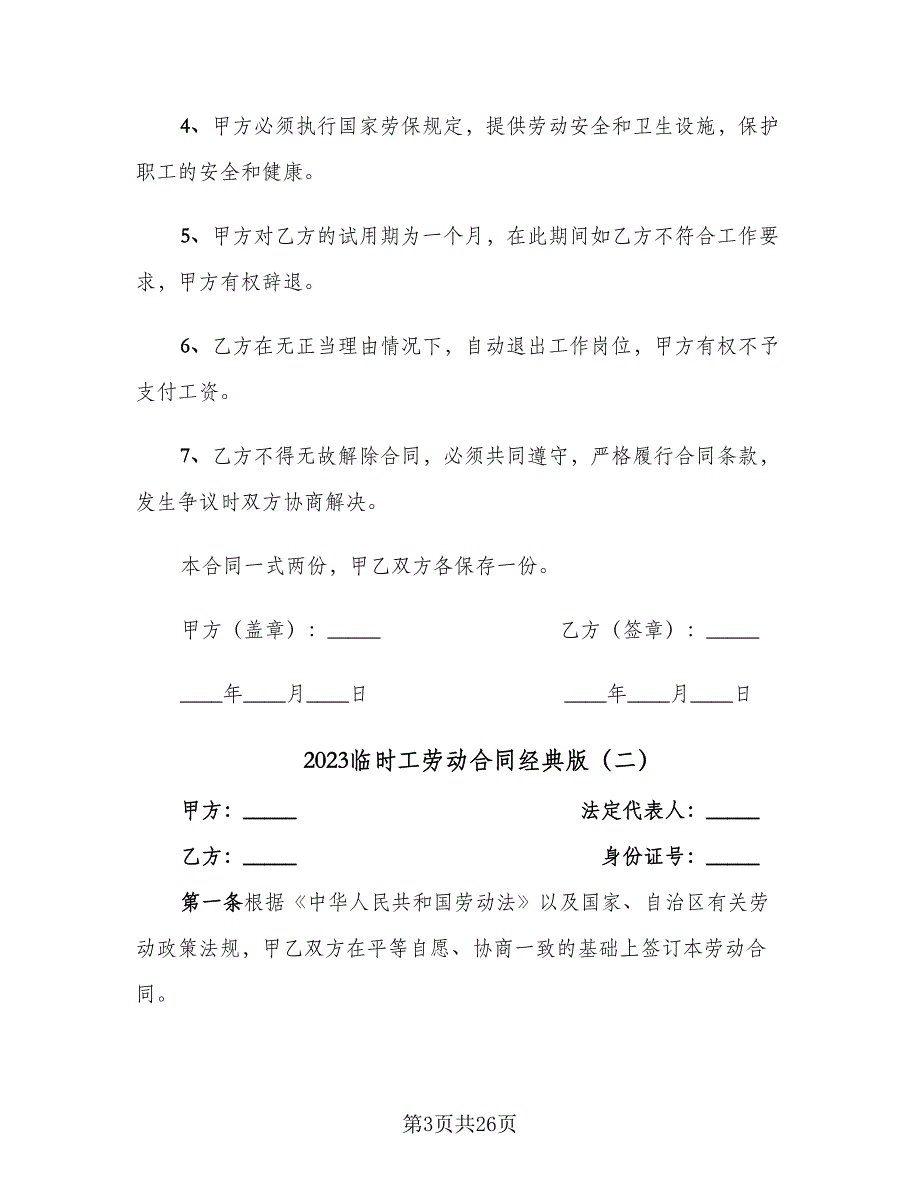 4、甲方必须执行国家劳保规定，提供劳动安全和卫生设施，保护
职工的安全和健康。
5、甲方对乙方的试用期为一个月，在此期间如乙方不符合工作要
求，甲方有权辞退。
6、乙方在无正当理由情况下，自动退出工作岗位，甲方有权不予
支付工资。
7、乙方不得无故解除合同，必须共同遵守，严格履行合同条款，
发生争议时双方协商解决。
本合同一式两份，甲乙双方各保存一份。
甲方（盖章）：_____ 乙方（签章）：_____
____年____月____日 ____年____月____日
2023临时工劳动合同经典版（二）
甲方：_____ 法定代表人：_____
乙方：_____ 身份证号：_____
第一条根据《中华人民共和国劳动法》以及国家、自治区有关劳
动政策法规，甲乙双方在平等自愿、协商一致的基础上签订本劳动合
同。
第3页共26页